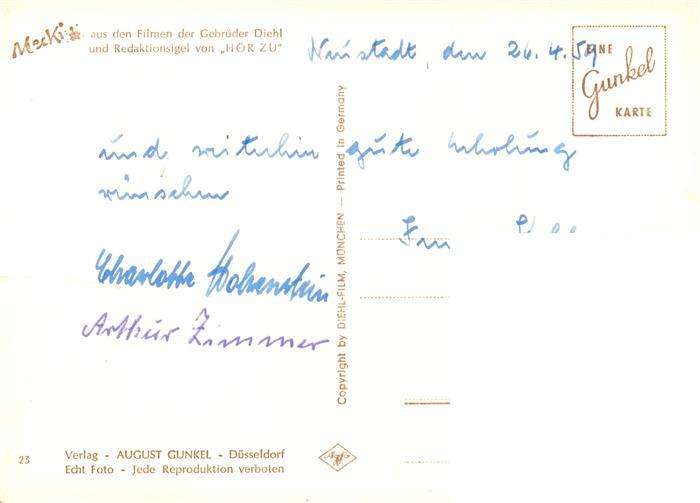 Mecki aus den Filmen der Gebrüder Diehl
und Redaktionsigel von „HÖR ZU"
Neustadt, den 26.4.59
EINE
Gunkel
KARTE
und weiterhin gute Erholung
wünschen
Charlotte Hohenstein
Arthur Zimmer
Copyright by DIEHL-FILM, MÜNCHEN — Printed in Germany
23
Verlag - AUGUST GUNKEL - Düsseldorf
Echt Foto - Jede Reproduktion verboten